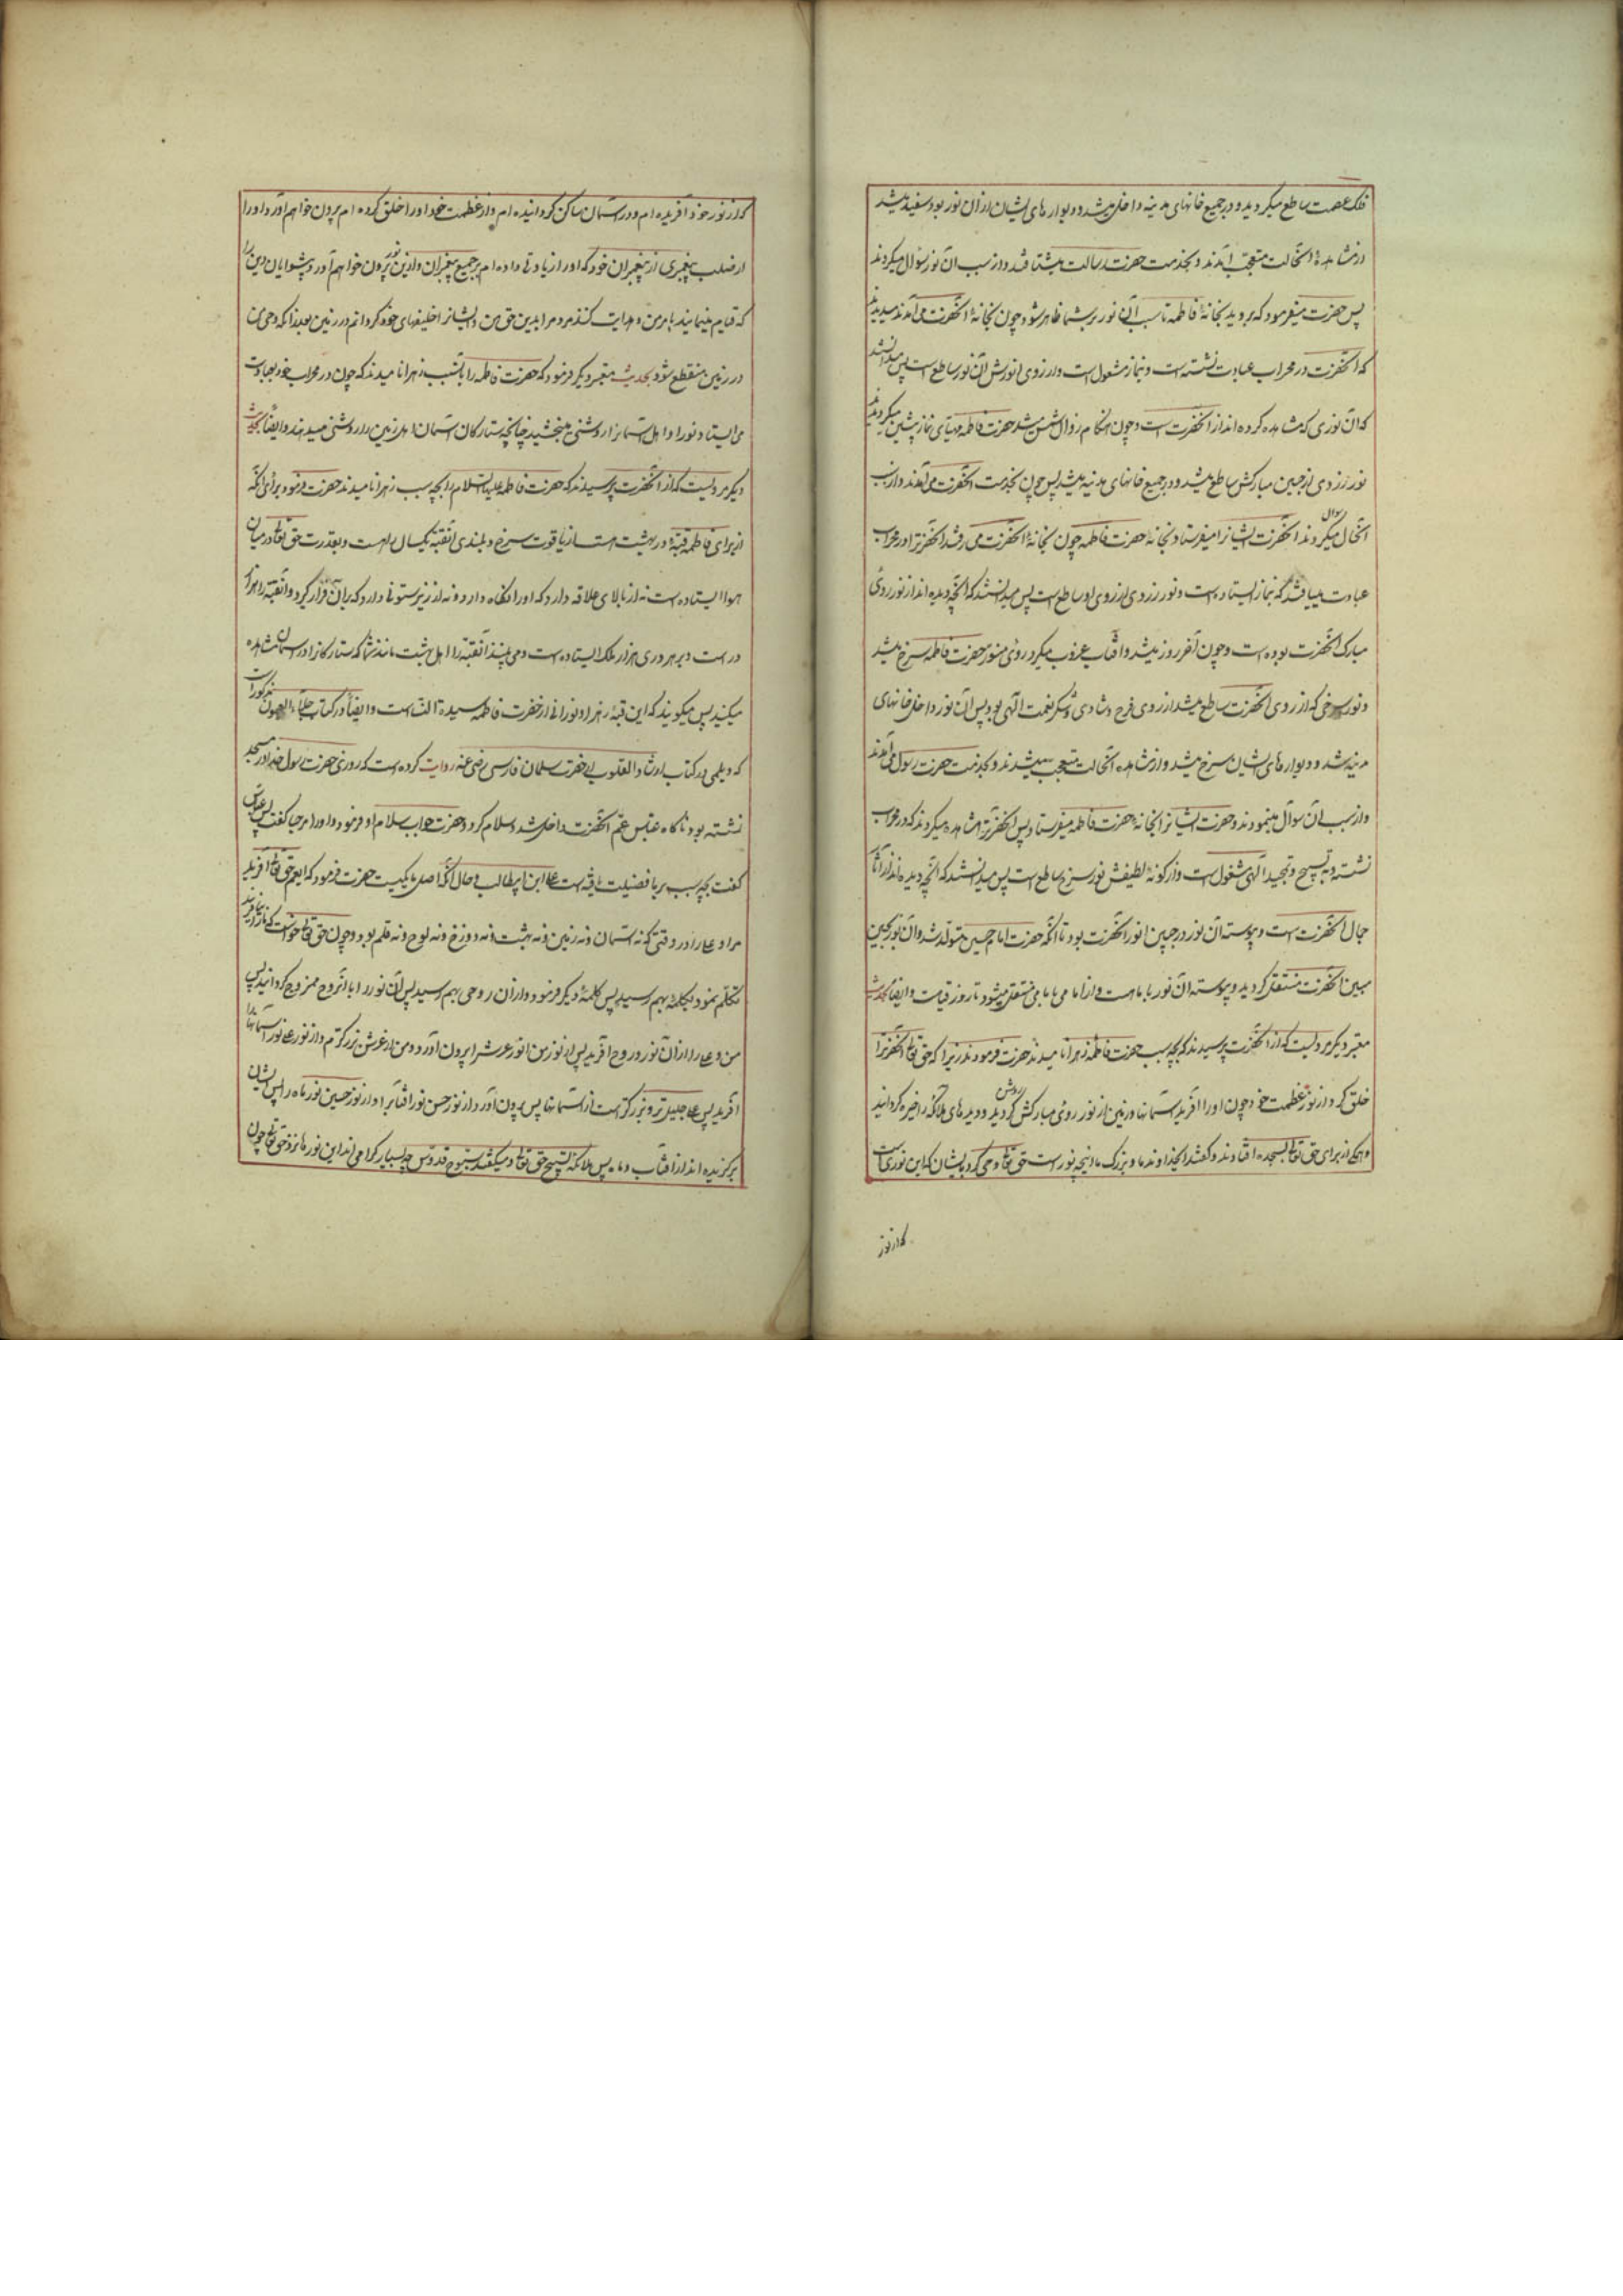 فلک عصمت ساطع میکردید و در جمیع خانهای مدینه داخل میشد و دیوارهای ایشان از ان نور بود سفید میشد
از مشاهده انحالت متعجب میآمدند و بخدمت حضرت رسالت میشتافتند و از سبب ان نور سؤال میکردند
پس حضرت میفرمود که بروید بخانهٔ فاطمه تا سبب آن نور بر شما ظاهر شود چون بخانهٔ انحضرت می آمدند میدیدند
که انحضرت در محراب عبادت نشسته است و بنماز مشغول است و از روی انورش آن نور ساطع است پس میدانستند
که آن نوری که مشاهده کرده اند از انحضرت است و چون هنکام زوال شمس میشد حضرت فاطمه مهیای نماز پیشین میکردید
نور زردی از جبین مبارکش ساطع میشد و در جمیع خانهای مدینه میشد پس چون بخدمت انحضرت می آمدند و از سبب
انحال سوال میکردند انحضرت ایشانرا میفرستاد بخانه حضرت فاطمه چون بخانهٔ انحضرت می رفتند انحضرترا در محراب
عبادت مییافتند که بنماز ایستاده است و نور زردی از روی او ساطع است پس میدانستند که انچه دیده اند از نور روی
مبارک انحضرت بوده است و چون آخر روز میشد و افتاب غروب میکرد روی منور حضرت فاطمه سرخ میشد
و نور سرخی که از روی انحضرت ساطع میشد از روی فرح و شادی و شکر نعمت الهی بود پس آن نور داخل خانهای
مدینه شد و دیوارهای ایشان سرخ میشد و از مشاهده انحالت متعجب میشدند و بخدمت حضرت رسول می آمدند
و از سبب ان سوال مینمودند و حضرت ایشانرا بخانهٔ حضرت فاطمه میفرستاد پس انحضرترا مشاهده میکردند که در محراب
نشسته و به تسبیح و تمجید الهی مشغول است و از کونهٔ لطیفش نور سرخ ساطع است پس میدانستند که انچه دیده اند از آثار
جمال انحضرت است و پیوسته آن نور در جبین انور انحضرت بود تا انکه حضرت امام حسین متولد شد و ان نور بجبین
مبین انحضرت منتقل کردید و پیوسته ان نور با ماست و از امامی بامامی منتقل میشود تا روز قیامت و ایضا بحدیث
معتبر دیکر مرویست که از انحضرت پرسیدند که بچه سبب حضرت فاطمه زهرا نامیدند حضرت فرمودند زیرا که حق تعالی انحضرترا
خلق کرد از نور عظمت خود چون اورا افرید آسمانها و زمین از نور روی مبارکش روشن کردید و دیدهای ملائکه را خیره کردانید
و همکی از برای حق تعالی بسجده افتادند و کفتند ایخداوند ما و بزرک ما اینچه نور است حق تعالی وحی کرد بایشان که این نوری است
که از نور
که از نور خود آفریده ام و در آسمان ساکن کردانیده ام و از عظمت خود اورا خلق کرده ام بیرون خواهم آورد اورا
از صلب پیغمبری از پیغمبران خود که اورا زیادتی داده ام بر جمیع پیغمبران و ازین نور بیرون خواهم آورد پیشوایان دین را
که قیام مینمایند بامر من و هدایت کنند مردم را بدین حق من و ایشانرا خلیفهای خود کردانم در زمین بعد از انکه وحی من
در زمین منقطع شود بحدیث معتبر دیکر فرمود که حضرت فاطمه را بانسبب زهرا نامیدند که چون در محراب خود بعبادت
می ایستاد نور او اهل آسمانرا روشنی میبخشید چنانچه ستارکان آسمان اهل زمین را روشنی میدهند و ایضا بحدیث
دیکر مرویست که از انحضرت پرسیدند که حضرت فاطمه علیها السلام را بچه سبب زهرا نامیدند حضرت فرمود برای انکه
از برای فاطمه قبهٔ در بهشت هست از یاقوت سرخ و بلندی انقبه یکسال راهست و بقدرت حق تعالی در میان
هوا ایستاده است نه از بالای علاقه دارد که اورا نکاه دارد و نه از زیر ستونی دارد که بر آن قرار کیرد و انقبه را هزار
در است و بر هر دری هزار ملک ایستاده است و می بینند انقبه را اهل بهشت مانند شما که ستارکانرا در آسمان مشاهده
میکنید پس میکویند که این قبهٔ زهرا و نورانی از حضرت فاطمه سیدة النساست و ایضا در کتاب جلاء العیون مذکور است
که دیلمی در کتاب ارشاد القلوب از حضرت سلمان فارسی رضی عنه روایت کرده است که روزی حضرت رسول خدا در مسجد
نشسته بود ناکاه عباس عم انحضرت داخل شد و سلام کرد و حضرت جواب سلام او فرمود و اورا مرحبا کفت پس عباس
کفت بچه سبب بر ما فضیلت یافته است علی ابن ابیطالب و حال آنکه اصل ما یکیست حضرت فرمود که ایعم حق تعالی آفرید
مرا و علی را در وقتی که نه آسمان و نه زمین و نه بهشت و نه دوزخ و نه لوح و نه قلم بود و چون حق تعالی خواست که ما را بیافریند
تکلم نمود بیکلمهٔ بهم رسید پس کلمهٔ دیکر فرمود و از ان روحی بهم رسید پس آن نور را با انروح ممزوج کردانید پس
من و علی را از آن نور و روح افرید پس از نور من انور عرشرا بیرون آورد و من از عرش بزرکترم و از نور علی نور آسمانها را
افرید پس علی جلیلتر و بزرکتر است از آسمانها پس بیرون آورد از نور حسن نور افتابرا و از نور حسین نور ماه را پس ایشان
برکزیده اند از افتاب و ماه پس ملائکه تسبیح حق تعالی میکفتند سبوح قدوس چه بسیار کرامی اند این نورها نزد حق تعالی چون